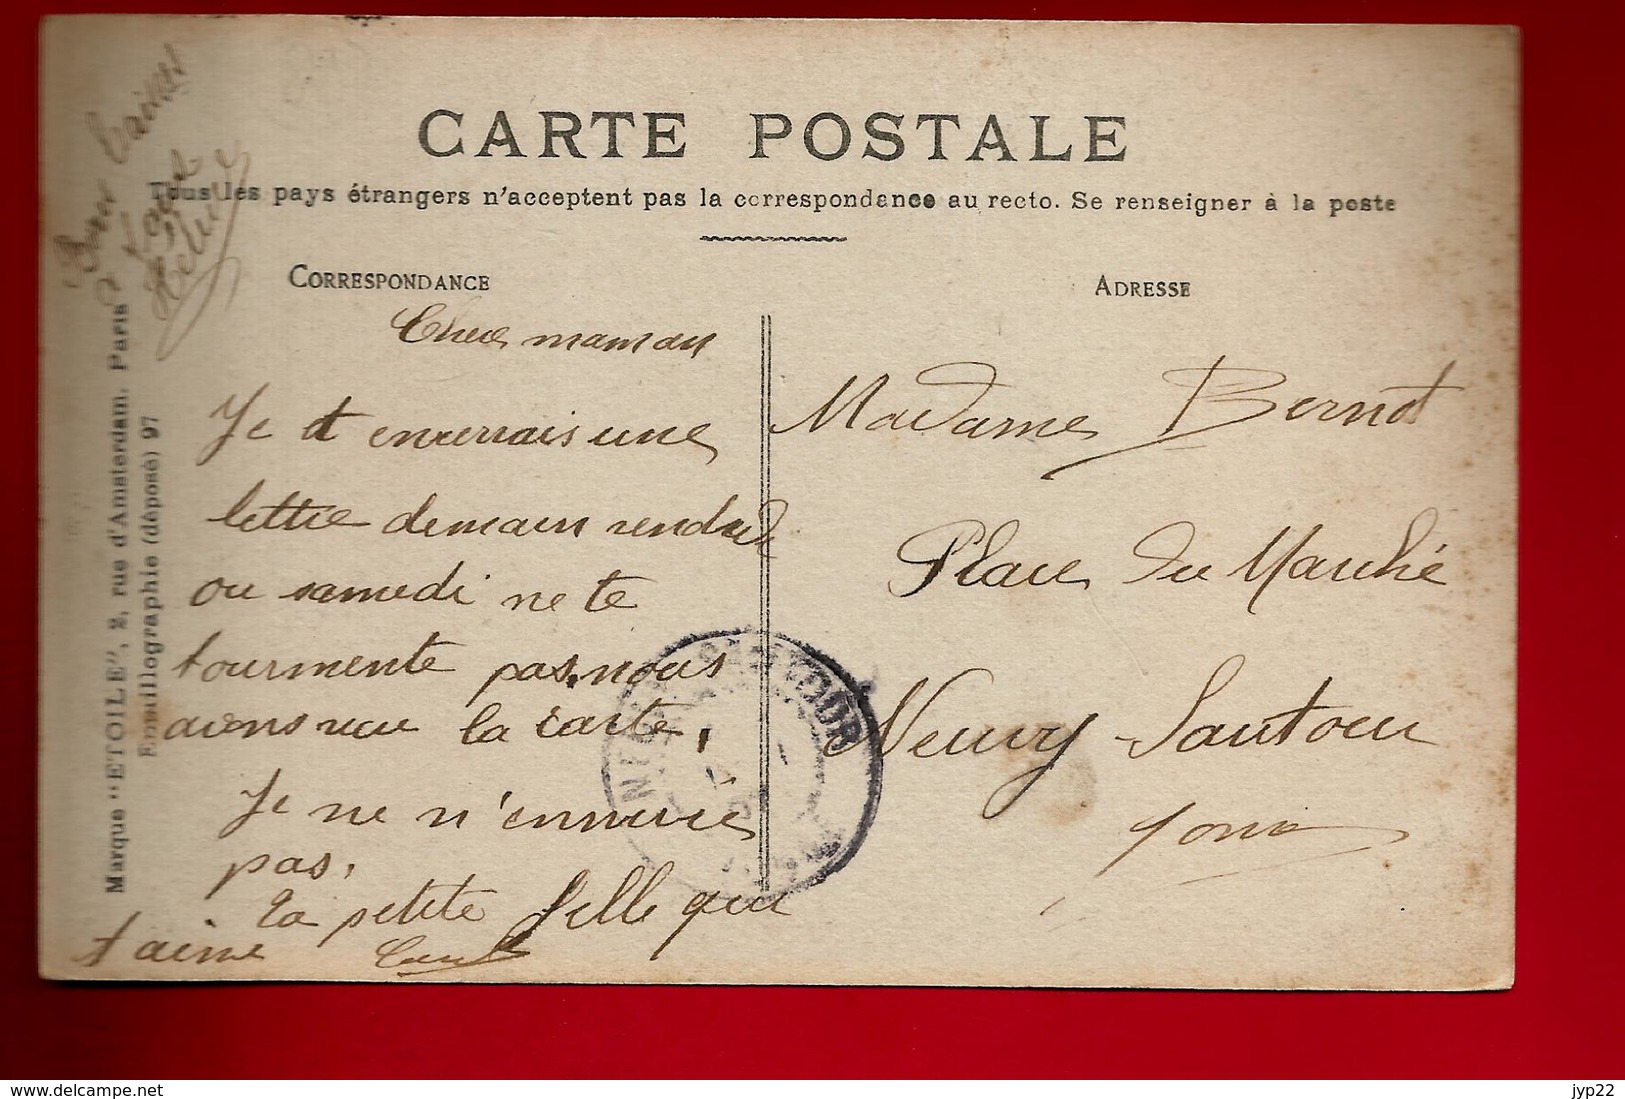 CARTE POSTALE
Tous les pays étrangers n'acceptent pas la correspondance au recto. Se renseigner à la poste
CORRESPONDANCE
ADRESSE
Chere maman
Je t enverrais une
lettre demain vendredi
ou samedi ne te
tourmente pas, nous
avons recu la carte,
Je ne n'ennuie
pas,
ta petite fille qui
t aime
Madame Bernot
Place du Marché
Neuvy Sautour
Yonne
Bons baisers
a
Marque "ETOILE", 2, rue d'Amsterdam, Paris
Emaillographie (déposé) 97
NEUVY SAUTOUR
www.delcampe.net
jyp22